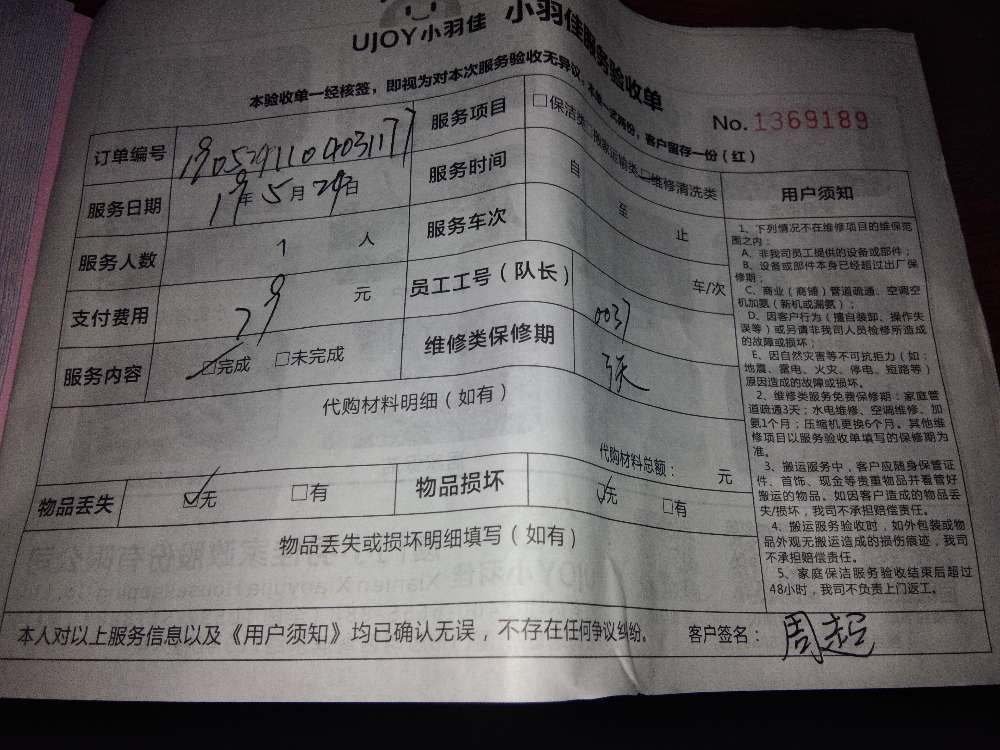 UJOY小羽佳 小羽佳服务验收单
本验收单一经核签，即视为对本次服务验收无异议。本单一式两份，客户留存一份（红）
No. 1369189
订单编号 1905291104031177
服务项目 □保洁类□搬家运输类□维修清洗类
服务日期 19年5月29日
服务时间 自 至 止
服务人数 1 人
服务车次 车/次
支付费用 79 元
员工工号（队长） 0037
服务内容 □完成 □未完成
维修类保修期 张
代购材料明细（如有）
代购材料总额： 元
物品丢失 ☑无 □有
物品损坏 ☑无 □有
物品丢失或损坏明细填写（如有）
用户须知
1、下列情况不在维修项目的维保范
围之内：
A、非我司员工提供的设备或部件；
B、设备或部件本身已经超过出厂保
修期；
C、商业（商铺）管道疏通、空调空
机加氨（新机或漏氨）；
D、因客户行为（擅自装卸、操作失
误等）或另请非我司人员检修所造成
的故障或损坏；
E、因自然灾害等不可抗拒力（如：
地震、雷电、火灾、停电、短路等）
原因造成的故障或损坏。
2、维修类服务免费保修期：家庭管
道疏通3天；水电维修、空调维修、加
氨1个月；压缩机更换6个月。其他维
修项目以服务验收单填写的保修期为
准。
3、搬运服务中，客户应随身保管证
件、首饰、现金等贵重物品并看管好
搬运的物品。如因客户造成的物品丢
失/损坏，我司不承担赔偿责任。
4、搬运服务验收时，如外包装或物
品外观无搬运造成的损伤痕迹，我司
不承担赔偿责任。
5、家庭保洁服务验收结束后超过
48小时，我司不负责上门返工。
本人对以上服务信息以及《用户须知》均已确认无误，不存在任何争议纠纷。 客户签名： 周超